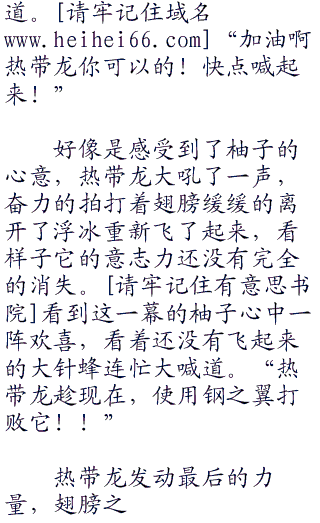 道。[请牢记住域名
www.heihei66.com]“加油啊
热带龙你可以的！快点喊起
来！”
好像是感受到了柚子的
心意，热带龙大吼了一声，
奋力的拍打着翅膀缓缓的离
开了浮冰重新飞了起来，看
样子它的意志力还没有完全
的消失。[请牢记住有意思书
院]看到这一幕的柚子心中一
阵欢喜，看着还没有飞起来
的大针蜂连忙大喊道。“热
带龙趁现在，使用钢之翼打
败它！！”
热带龙发动最后的力
量，翅膀之